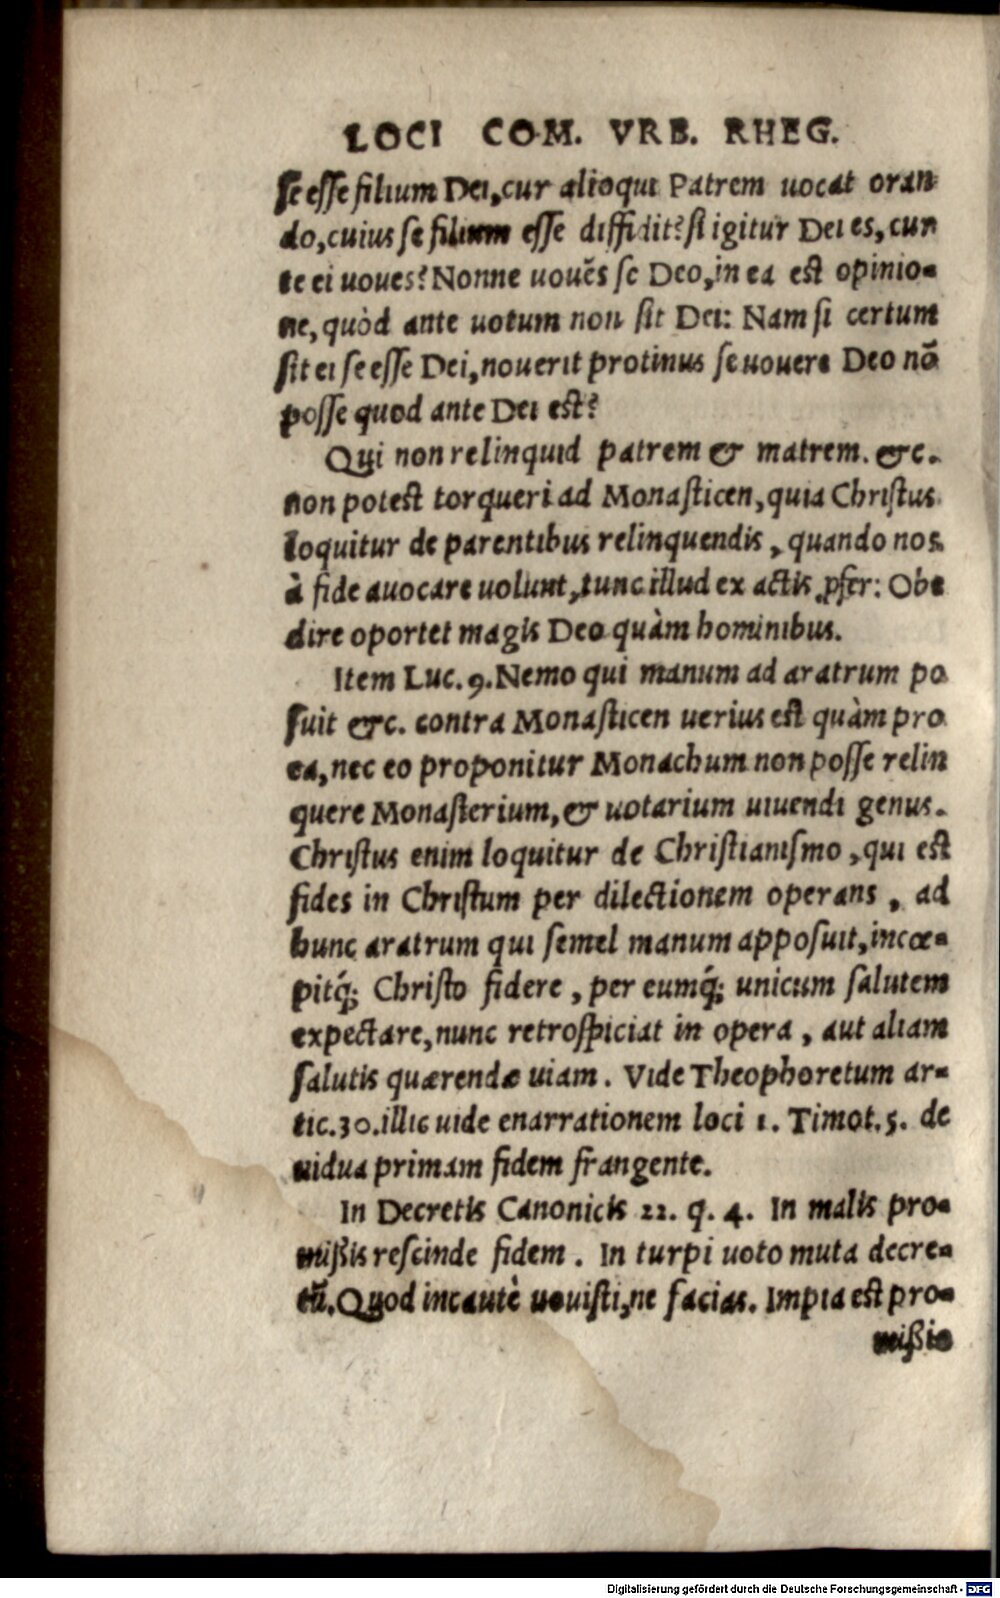 LOCI COM. VRB. RHEG.
se esse filium Dei, cur alioqui Patrem uocat oran
do, cuius se filium esse diffidit? si igitur Dei es, cur
te ei uoues? Nonne uouẽs se Deo, in ea est opinio-
ne, quòd ante uotum non sit Dei: Nam si certum
sit ei se esse Dei, nouerit protinus se uouere Deo nõ
posse quod ante Dei est?
Qui non relinquid patrem & matrem. &c.
non potest torqueri ad Monasticen, quia Christus
loquitur de parentibus relinquendis, quando nos
à fide auocare uolunt, tunc illud ex actis ꝓfer: Obe
dire oportet magis Deo quàm hominibus.
Item Luc. 9. Nemo qui manum ad aratrum po
suit &c. contra Monasticen uerius est quàm pro
ea, nec eo proponitur Monachum non posse relin
quere Monasterium, & uotarium uiuendi genus.
Christus enim loquitur de Christianismo, qui est
fides in Christum per dilectionem operans, ad
hunc aratrum qui semel manum apposuit, incœ-
pitq́; Christo fidere, per eumq́; unicum salutem
expectare, nunc retrospiciat in opera, aut aliam
salutis quærendæ uiam. Vide Theophoretum ar-
tic. 30. illic uide enarrationem loci 1. Timot. 5. de
uidua primam fidem frangente.
In Decretis Canonicis 22. q. 4. In malis pro-
mißis rescinde fidem. In turpi uoto muta decre-
tũ. Quod incautè uouisti, ne facias. Impia est pro-
mißio
Digitalisierung gefördert durch die Deutsche Forschungsgemeinschaft - DFG